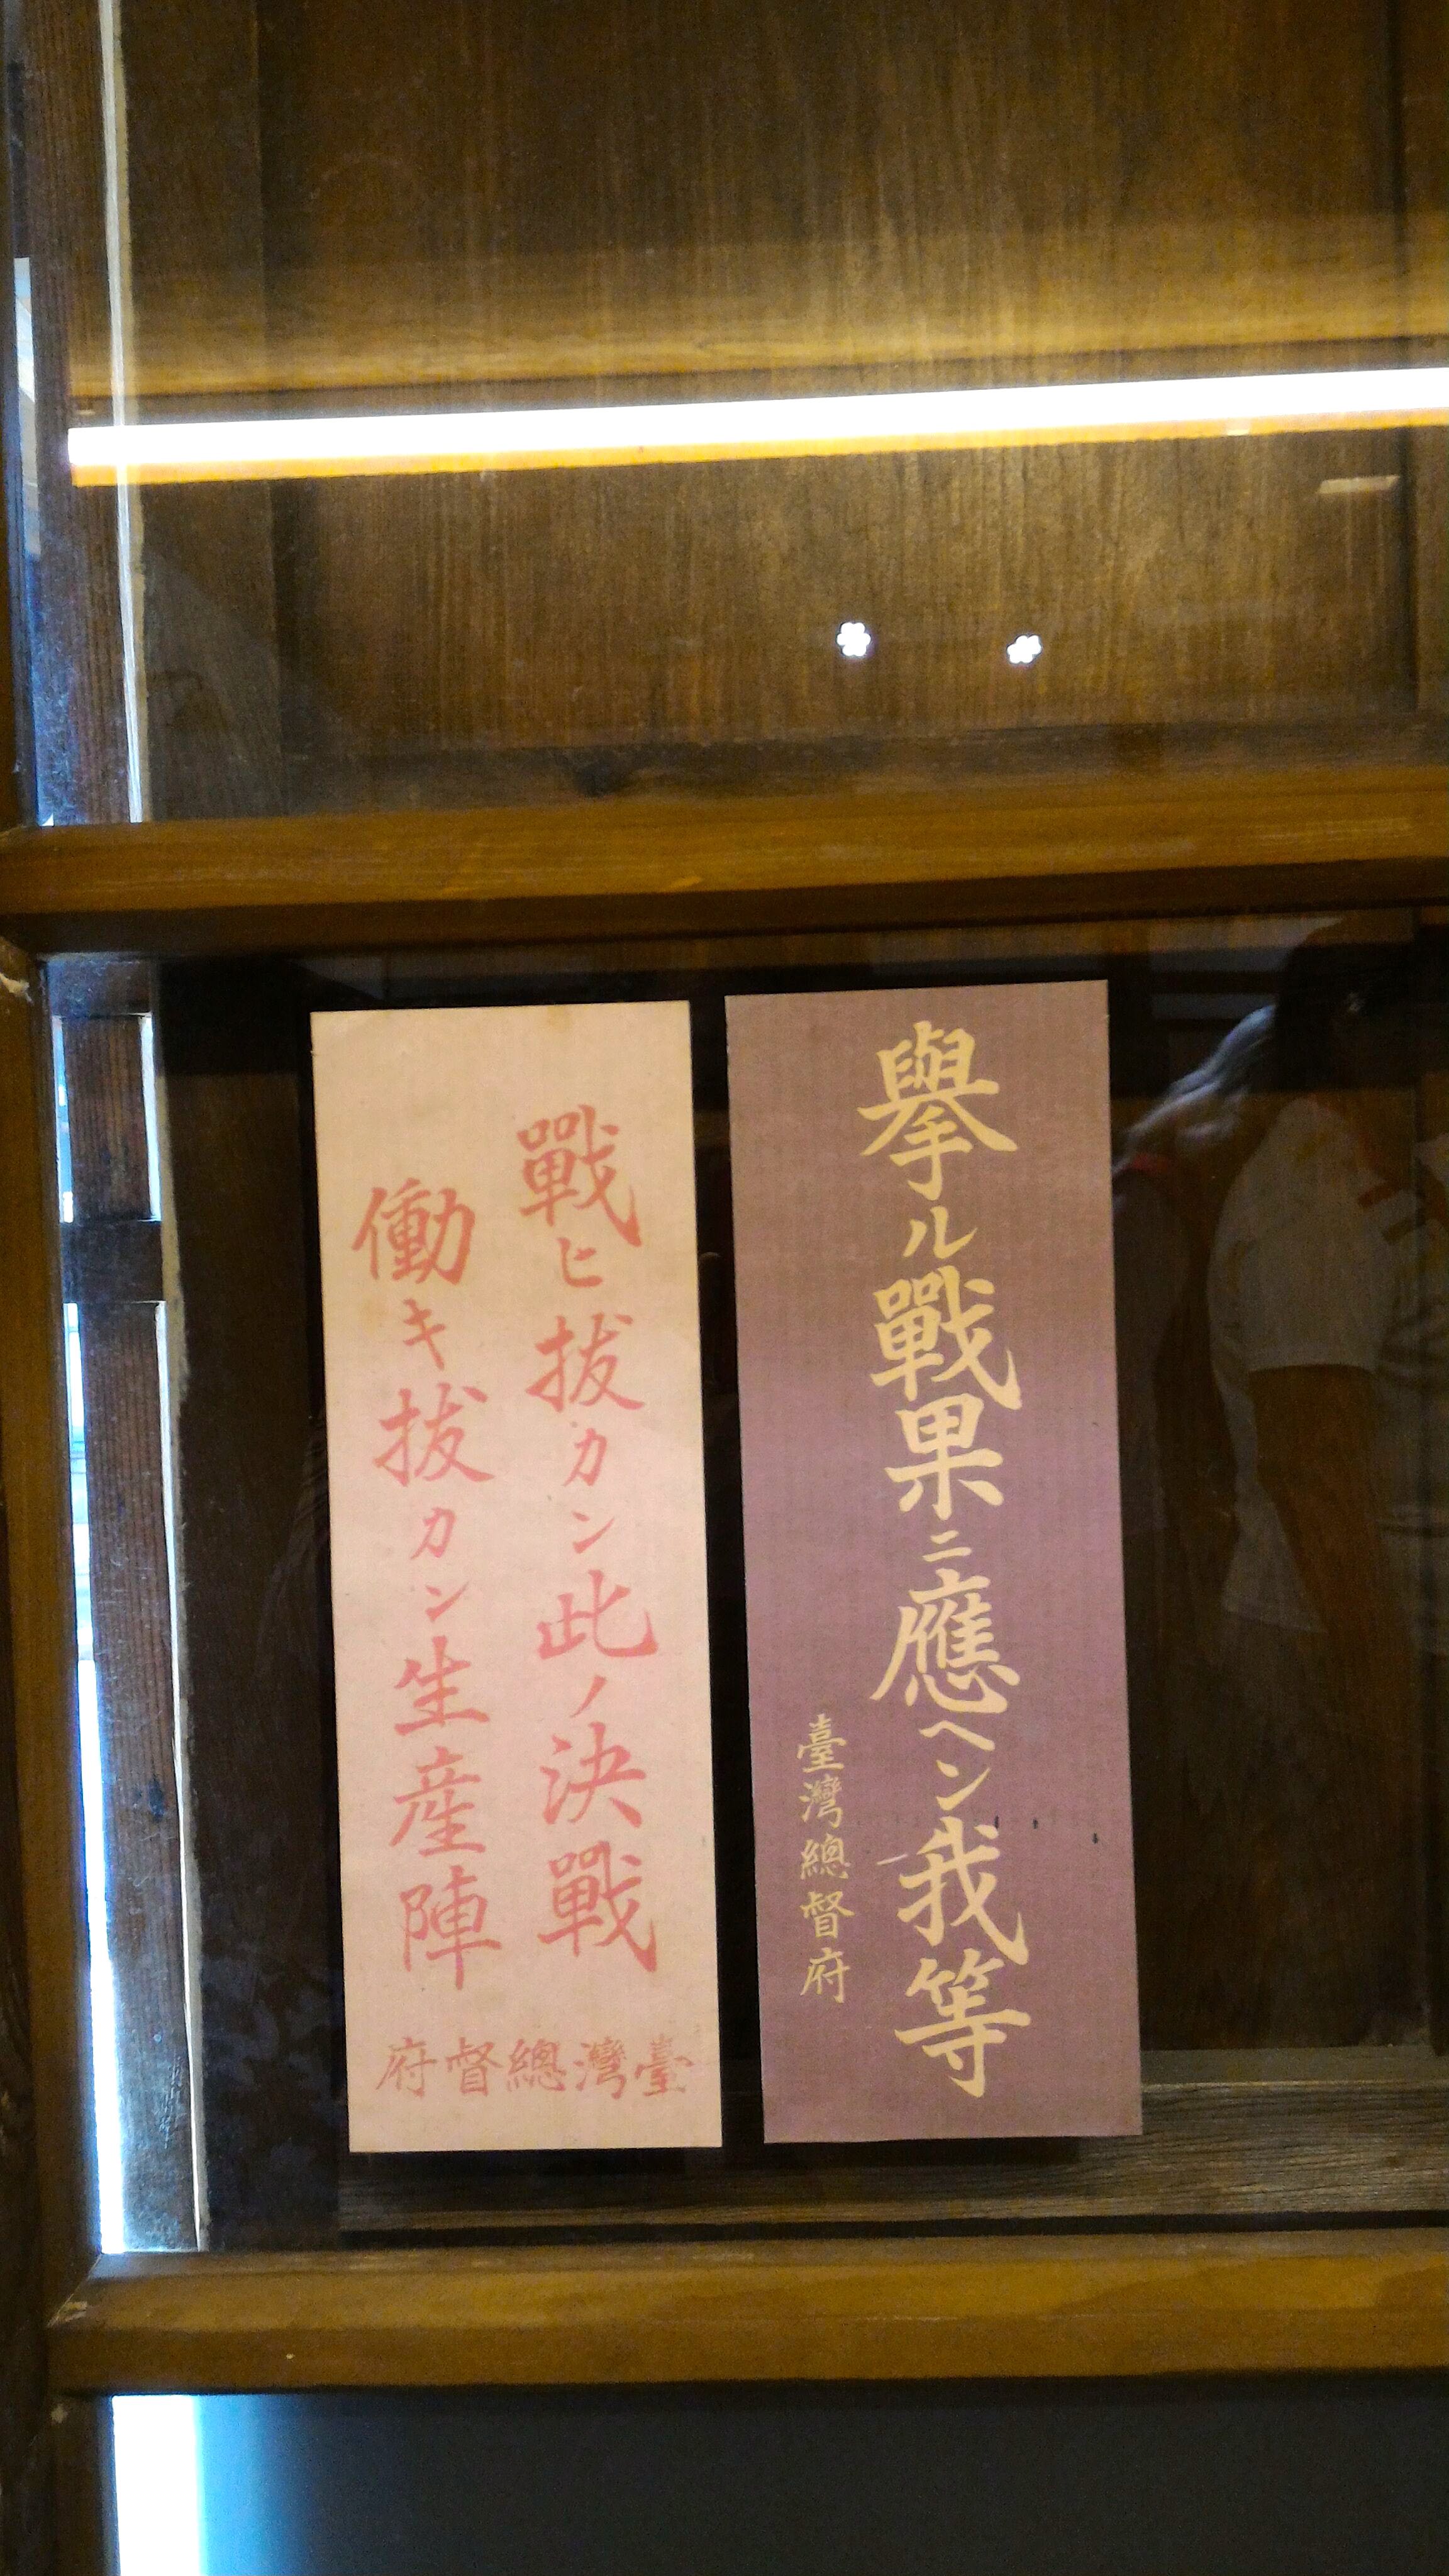 擧ル戰果ニ應ヘン我等
臺灣總督府
戰ヒ拔カン此ノ決戰
働キ拔カン生産陣
府督總灣臺